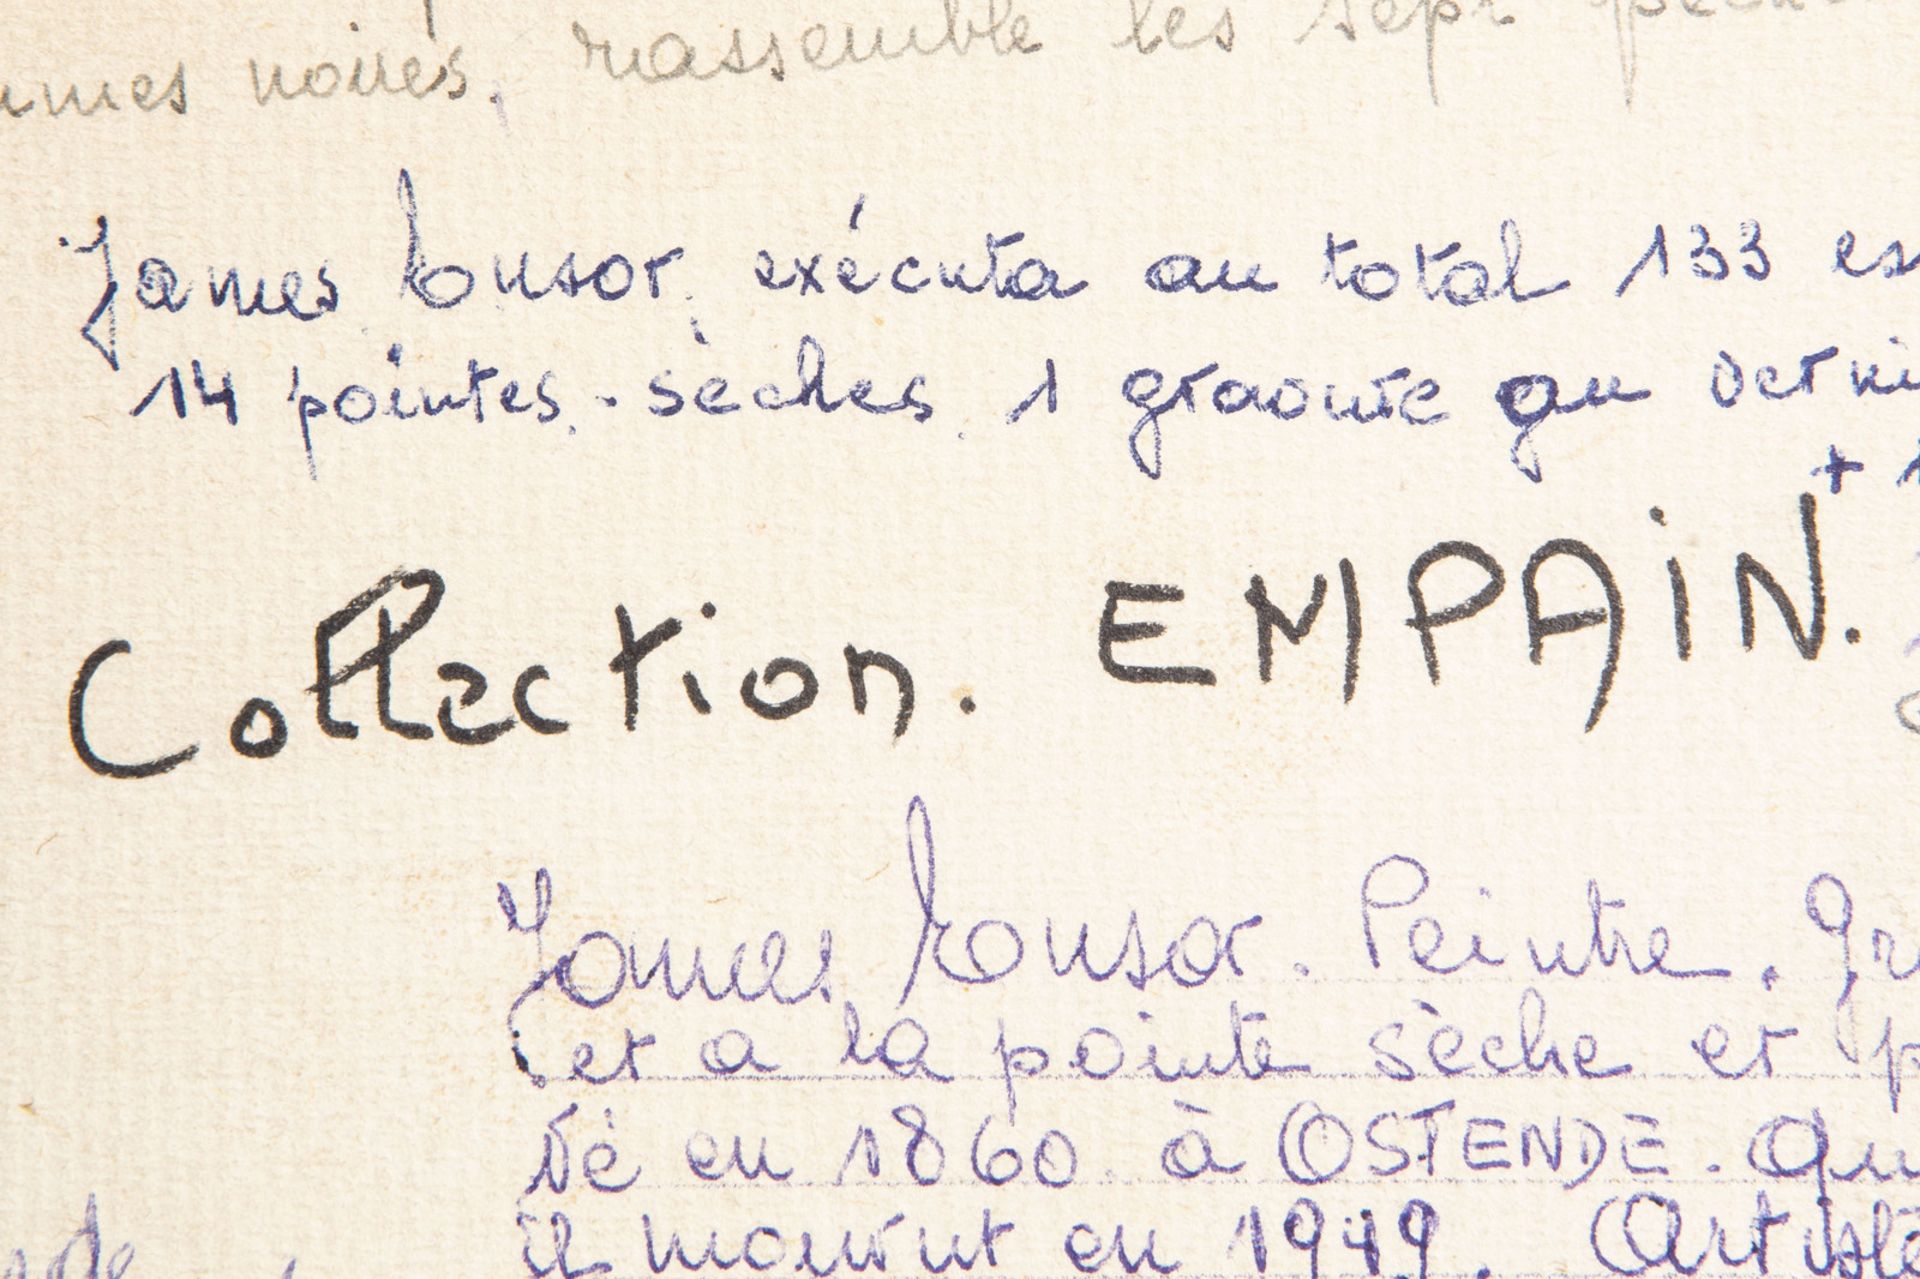 noirés, rassemble les sept
James Ensor, exécuta au total 133
14 pointes-sèches, 1 gravure au
+ 1
Collection. EMPAIN.
James Ensor. Peintre.
et a la pointe sèche et
Né en 1860. à OSTENDE.
il mourut en 1949. Artiste